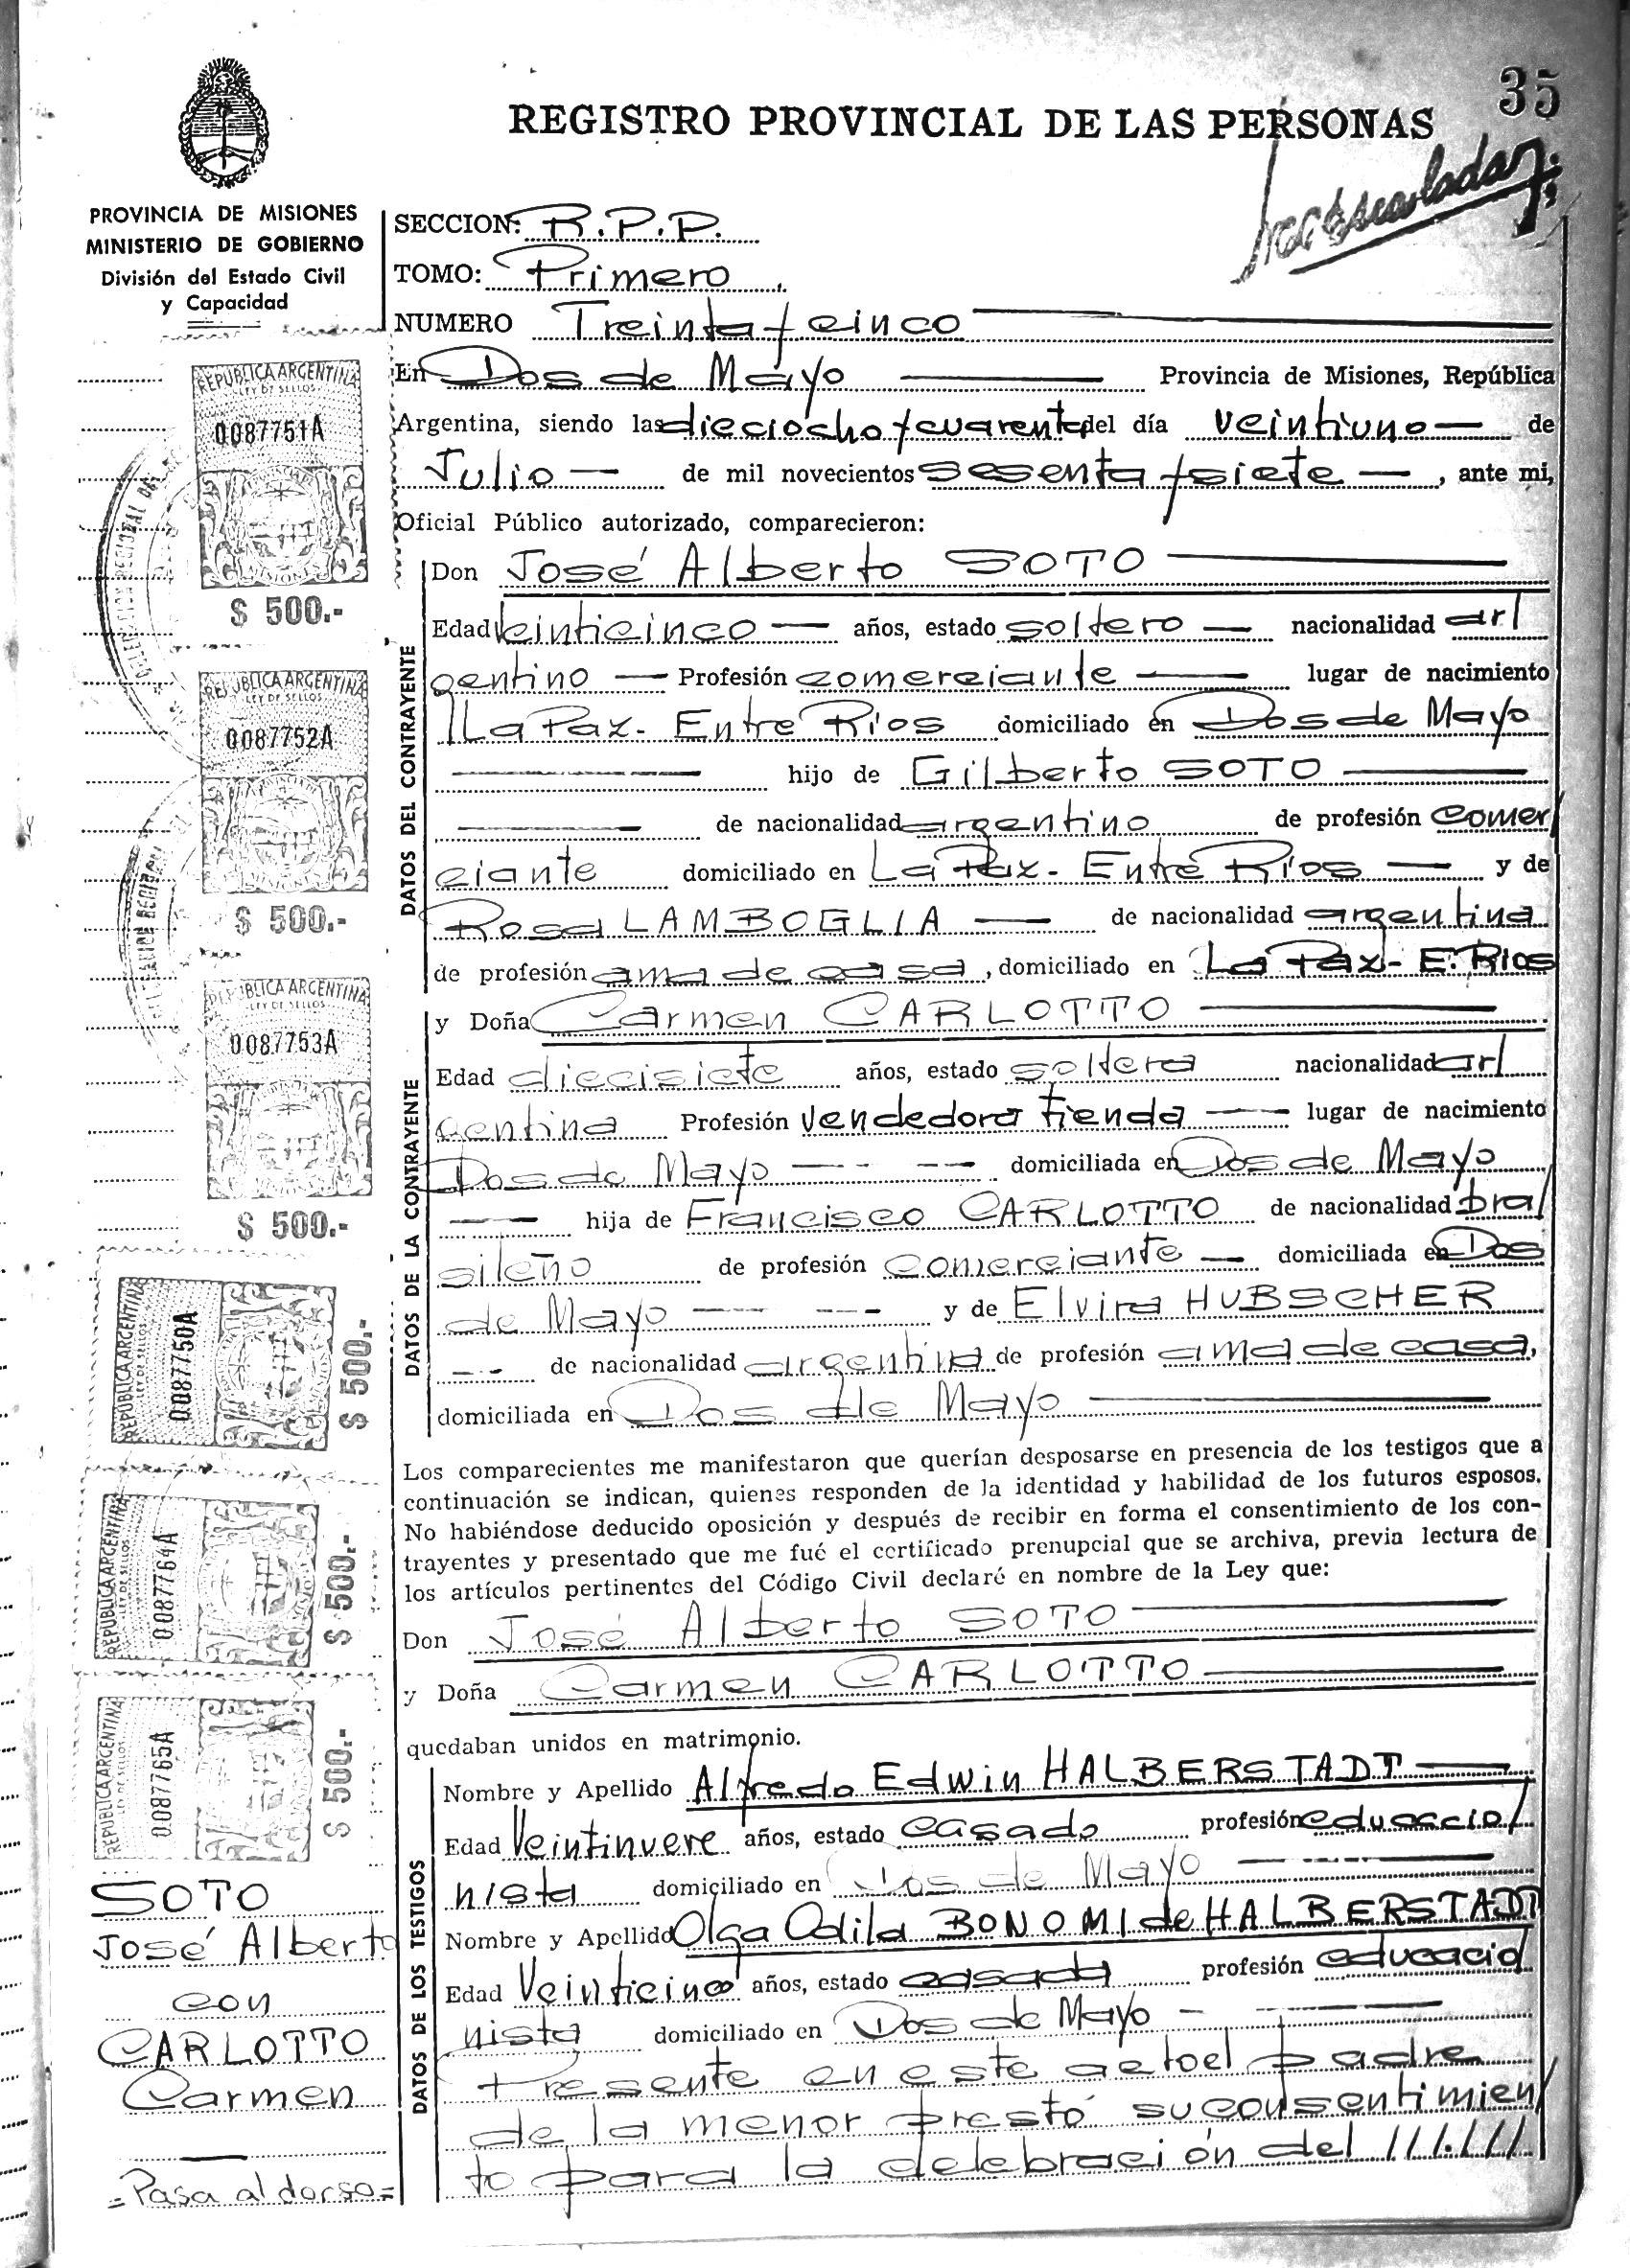 35
REGISTRO PROVINCIAL DE LAS PERSONAS
PROVINCIA DE MISIONES
MINISTERIO DE GOBIERNO
División del Estado Civil
y Capacidad
SECCION: R.P.P.
TOMO: Primero
NUMERO Treinta y cinco
En Dos de Mayo Provincia de Misiones, República
Argentina, siendo las dieciocho y cuarenta del día veintiuno de
Julio de mil novecientos sesenta y siete, ante mi,
Oficial Público autorizado, comparecieron:
DATOS DEL CONTRAYENTE
Don José Alberto SOTO
Edad Veinticinco años, estado soltero nacionalidad ar/
gentino Profesión comerciante lugar de nacimiento
La Paz - Entre Ríos domiciliado en Dos de Mayo
hijo de Gilberto SOTO
de nacionalidad argentino de profesión comer/
ciante domiciliado en La Paz - Entre Ríos y de
Rosa LAMBOGLIA de nacionalidad argentina
de profesión ama de casa, domiciliado en La Paz - E. Rios
DATOS DE LA CONTRAYENTE
y Doña Carmen CARLOTTO
Edad diecisiete años, estado soltera nacionalidad ar/
gentina Profesión Vendedora tienda lugar de nacimiento
Dos de Mayo domiciliada en Dos de Mayo
hija de Francisco CARLOTTO de nacionalidad bra/
sileño de profesión comerciante domiciliada en Dos
de Mayo y de Elvira HUBSCHER
de nacionalidad argentina de profesión ama de casa,
domiciliada en Dos de Mayo
Los comparecientes me manifestaron que querían desposarse en presencia de los testigos que a
continuación se indican, quienes responden de la identidad y habilidad de los futuros esposos.
No habiéndose deducido oposición y después de recibir en forma el consentimiento de los con-
trayentes y presentado que me fué el certificado prenupcial que se archiva, previa lectura de
los artículos pertinentes del Código Civil declaré en nombre de la Ley que:
Don José Alberto SOTO
y Doña Carmen CARLOTTO
quedaban unidos en matrimonio.
DATOS DE LOS TESTIGOS
Nombre y Apellido Alfredo Edwin HALBERSTADT
Edad Veintinueve años, estado casado profesión educacio/
nista domiciliado en Dos de Mayo
Nombre y Apellido Olga Odila BONOMI de HALBERSTADT
Edad Veinticinco años, estado casada profesión educacio/
nista domiciliado en Dos de Mayo
Presente en este acto el padre
de la menor prestó su consentimien/
to para la celebración del //////
REPUBLICA ARGENTINA
LEY DE SELLOS
0087751A
$ 500.-
REPUBLICA ARGENTINA
LEY DE SELLOS
0087752A
$ 500.-
REPUBLICA ARGENTINA
LEY DE SELLOS
0087753A
$ 500.-
REPUBLICA ARGENTINA
LEY DE SELLOS
0087750A
$ 500.-
REPUBLICA ARGENTINA
LEY DE SELLOS
0087764A
$ 500.-
REPUBLICA ARGENTINA
LEY DE SELLOS
0087765A
$ 500.-
SOTO
José Alberto
con
CARLOTTO
Carmen
= Pasa al dorso =